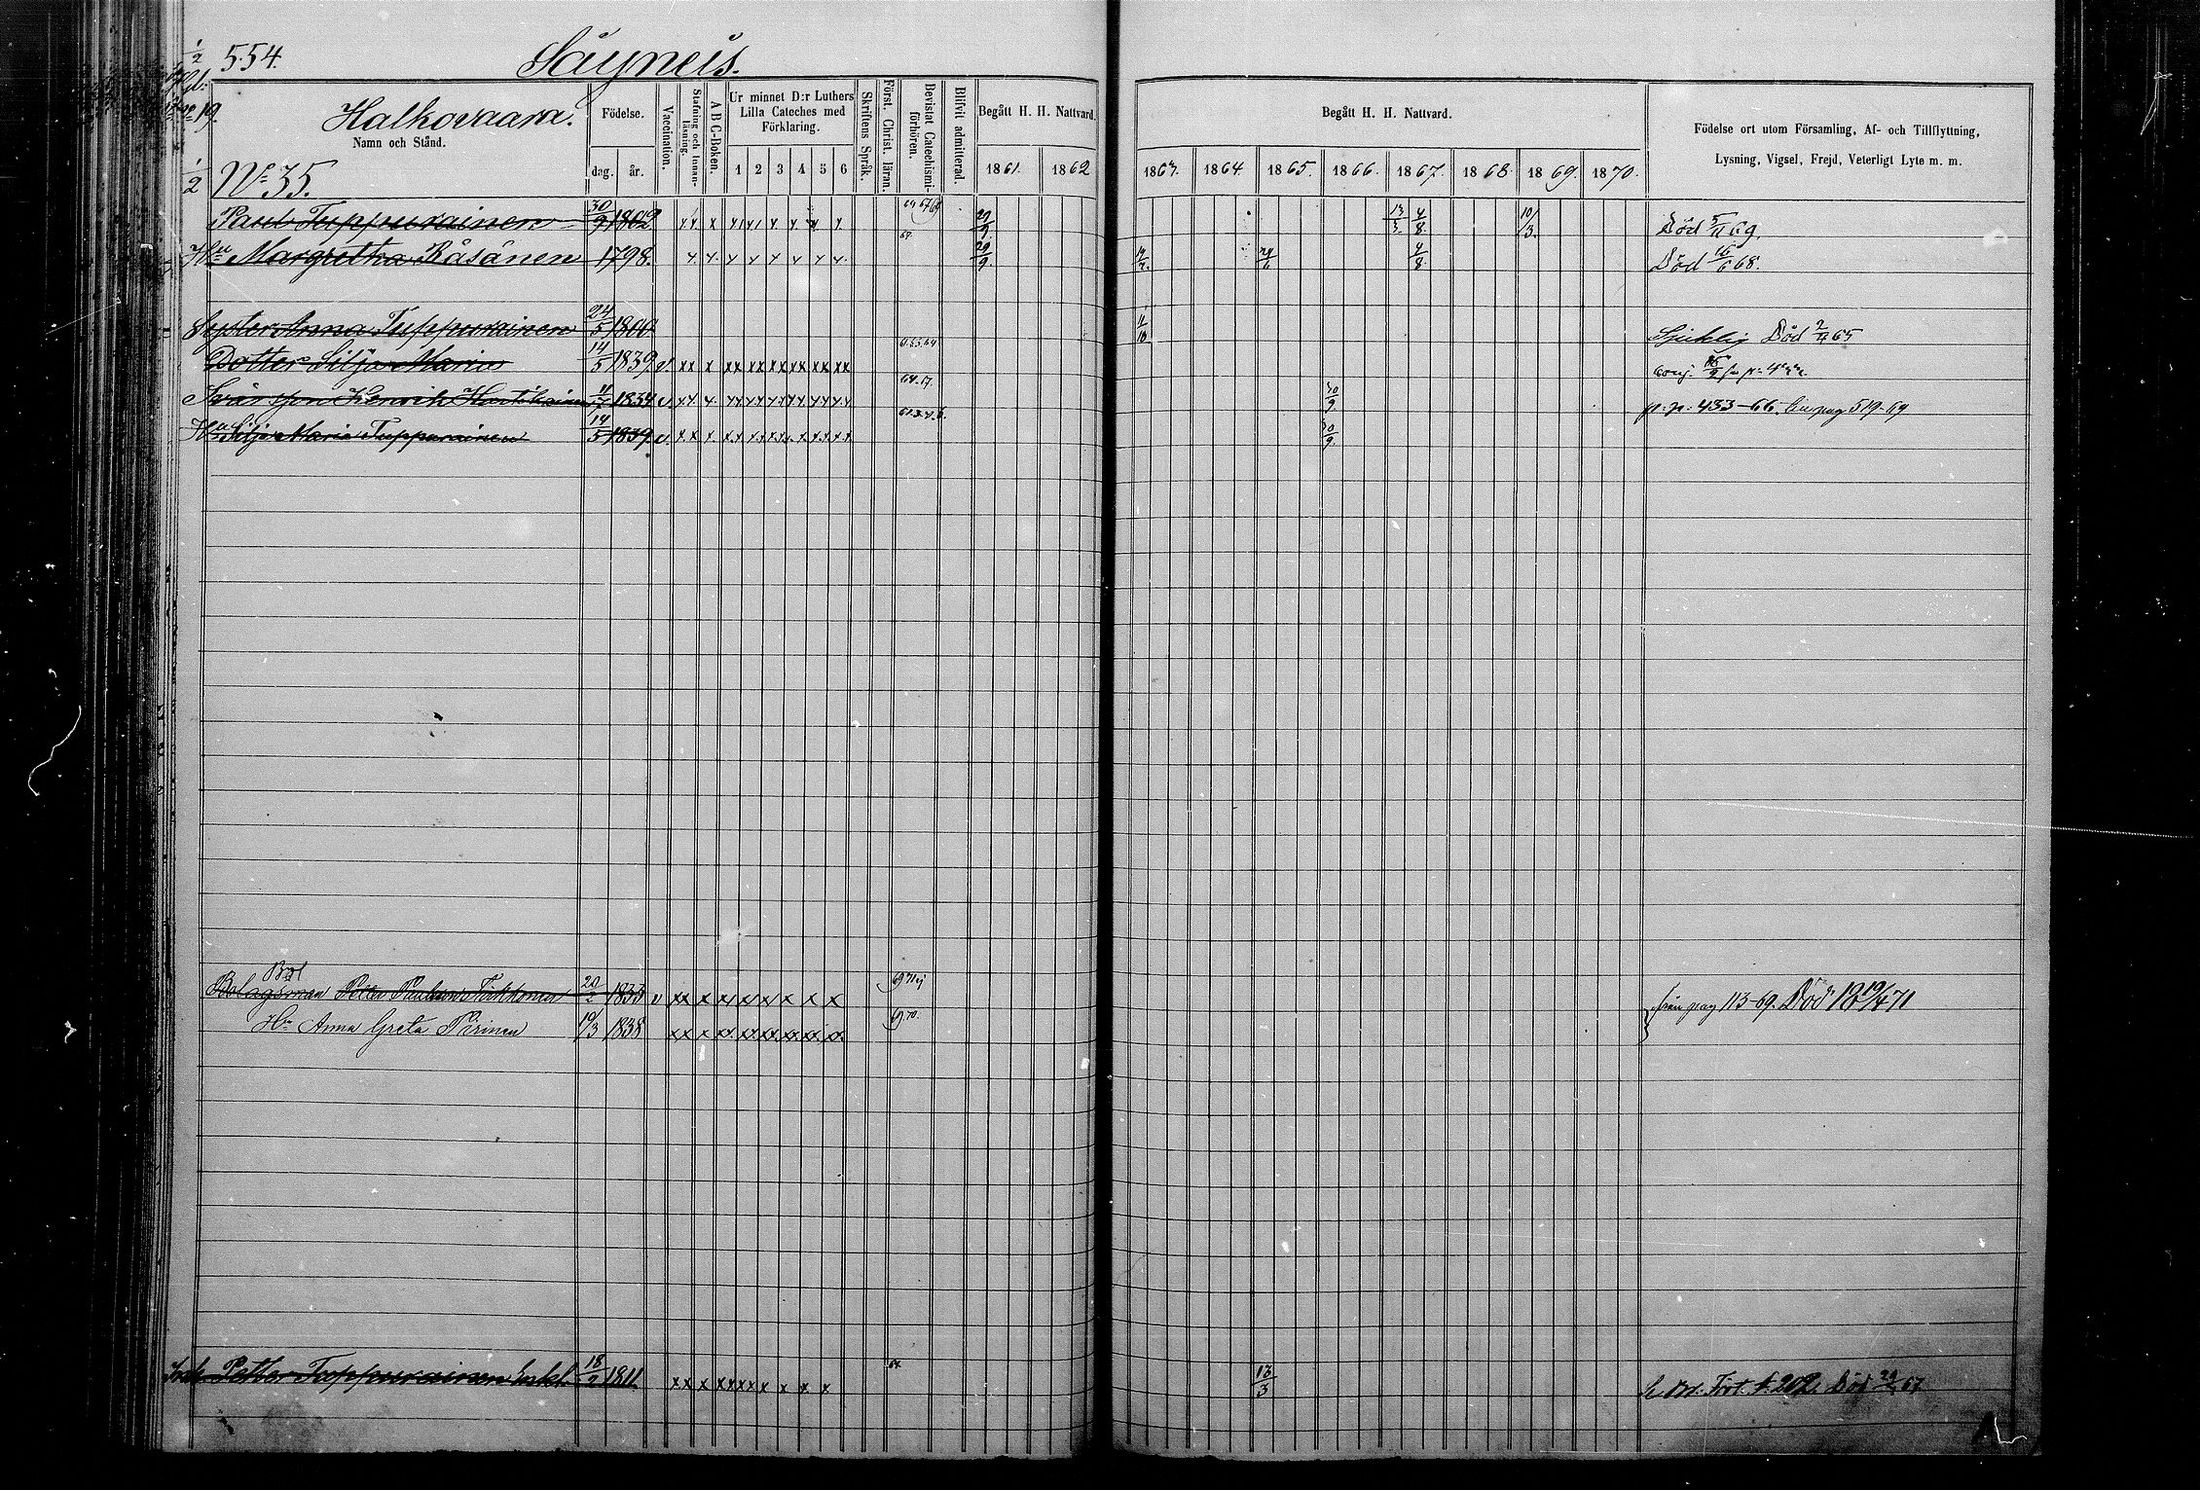 554.
Säyneis.
Halkovaara.
Namn och Stånd.
No 35.
Födelse.
dag. år.
Vaccination.
Stafning och Innanläsning.
A B C-Boken.
Ur minnet D:r Luthers Lilla Cateches med Förklaring.
1 2 3 4 5 6
Skriftens Språk.
Först. Christ. läran.
Bevistat Catechismiförhören.
Blifvit admitterad.
Begått H. H. Nattvard.
1861. 1862
Begått H. H. Nattvard.
1863. 1864. 1865. 1866. 1867. 1868. 1869. 1870.
Födelse ort utom Församling, Af- och Tillflyttning,
Lysning, Vigsel, Frejd, Veterligt Lyte m. m.
Paul Tuppurainen 30/9 1802 29/9 13/3 4/8 10/3. Död 5/11 69.
Hu Margretha Räsänen 1798. 29/9 29/6 4/8 Död 16/6 68.
Syster Anna Tuppurainen 24/5 1800 11/10 Sjuklig Död 65
Dotter Silja Maria 14/5 1839 v. xx x xx xx xx xx xx xx
Svärson Henrik 1834 v. 30/9 p. p. 433-66. 519-69
Hu Silja Maria Tuppurainen 14/5 1839. v. 30/9.
Bol
Bolagsman Petter 20/2 1833 v xx x från pag 113-69. Död 19/4 71
Hu Anna Greta Pirinen 10/3 1838 xx x 69 70.
Petter Tuppurainen 18/2 1811. xx x 64 13/3 Död 67